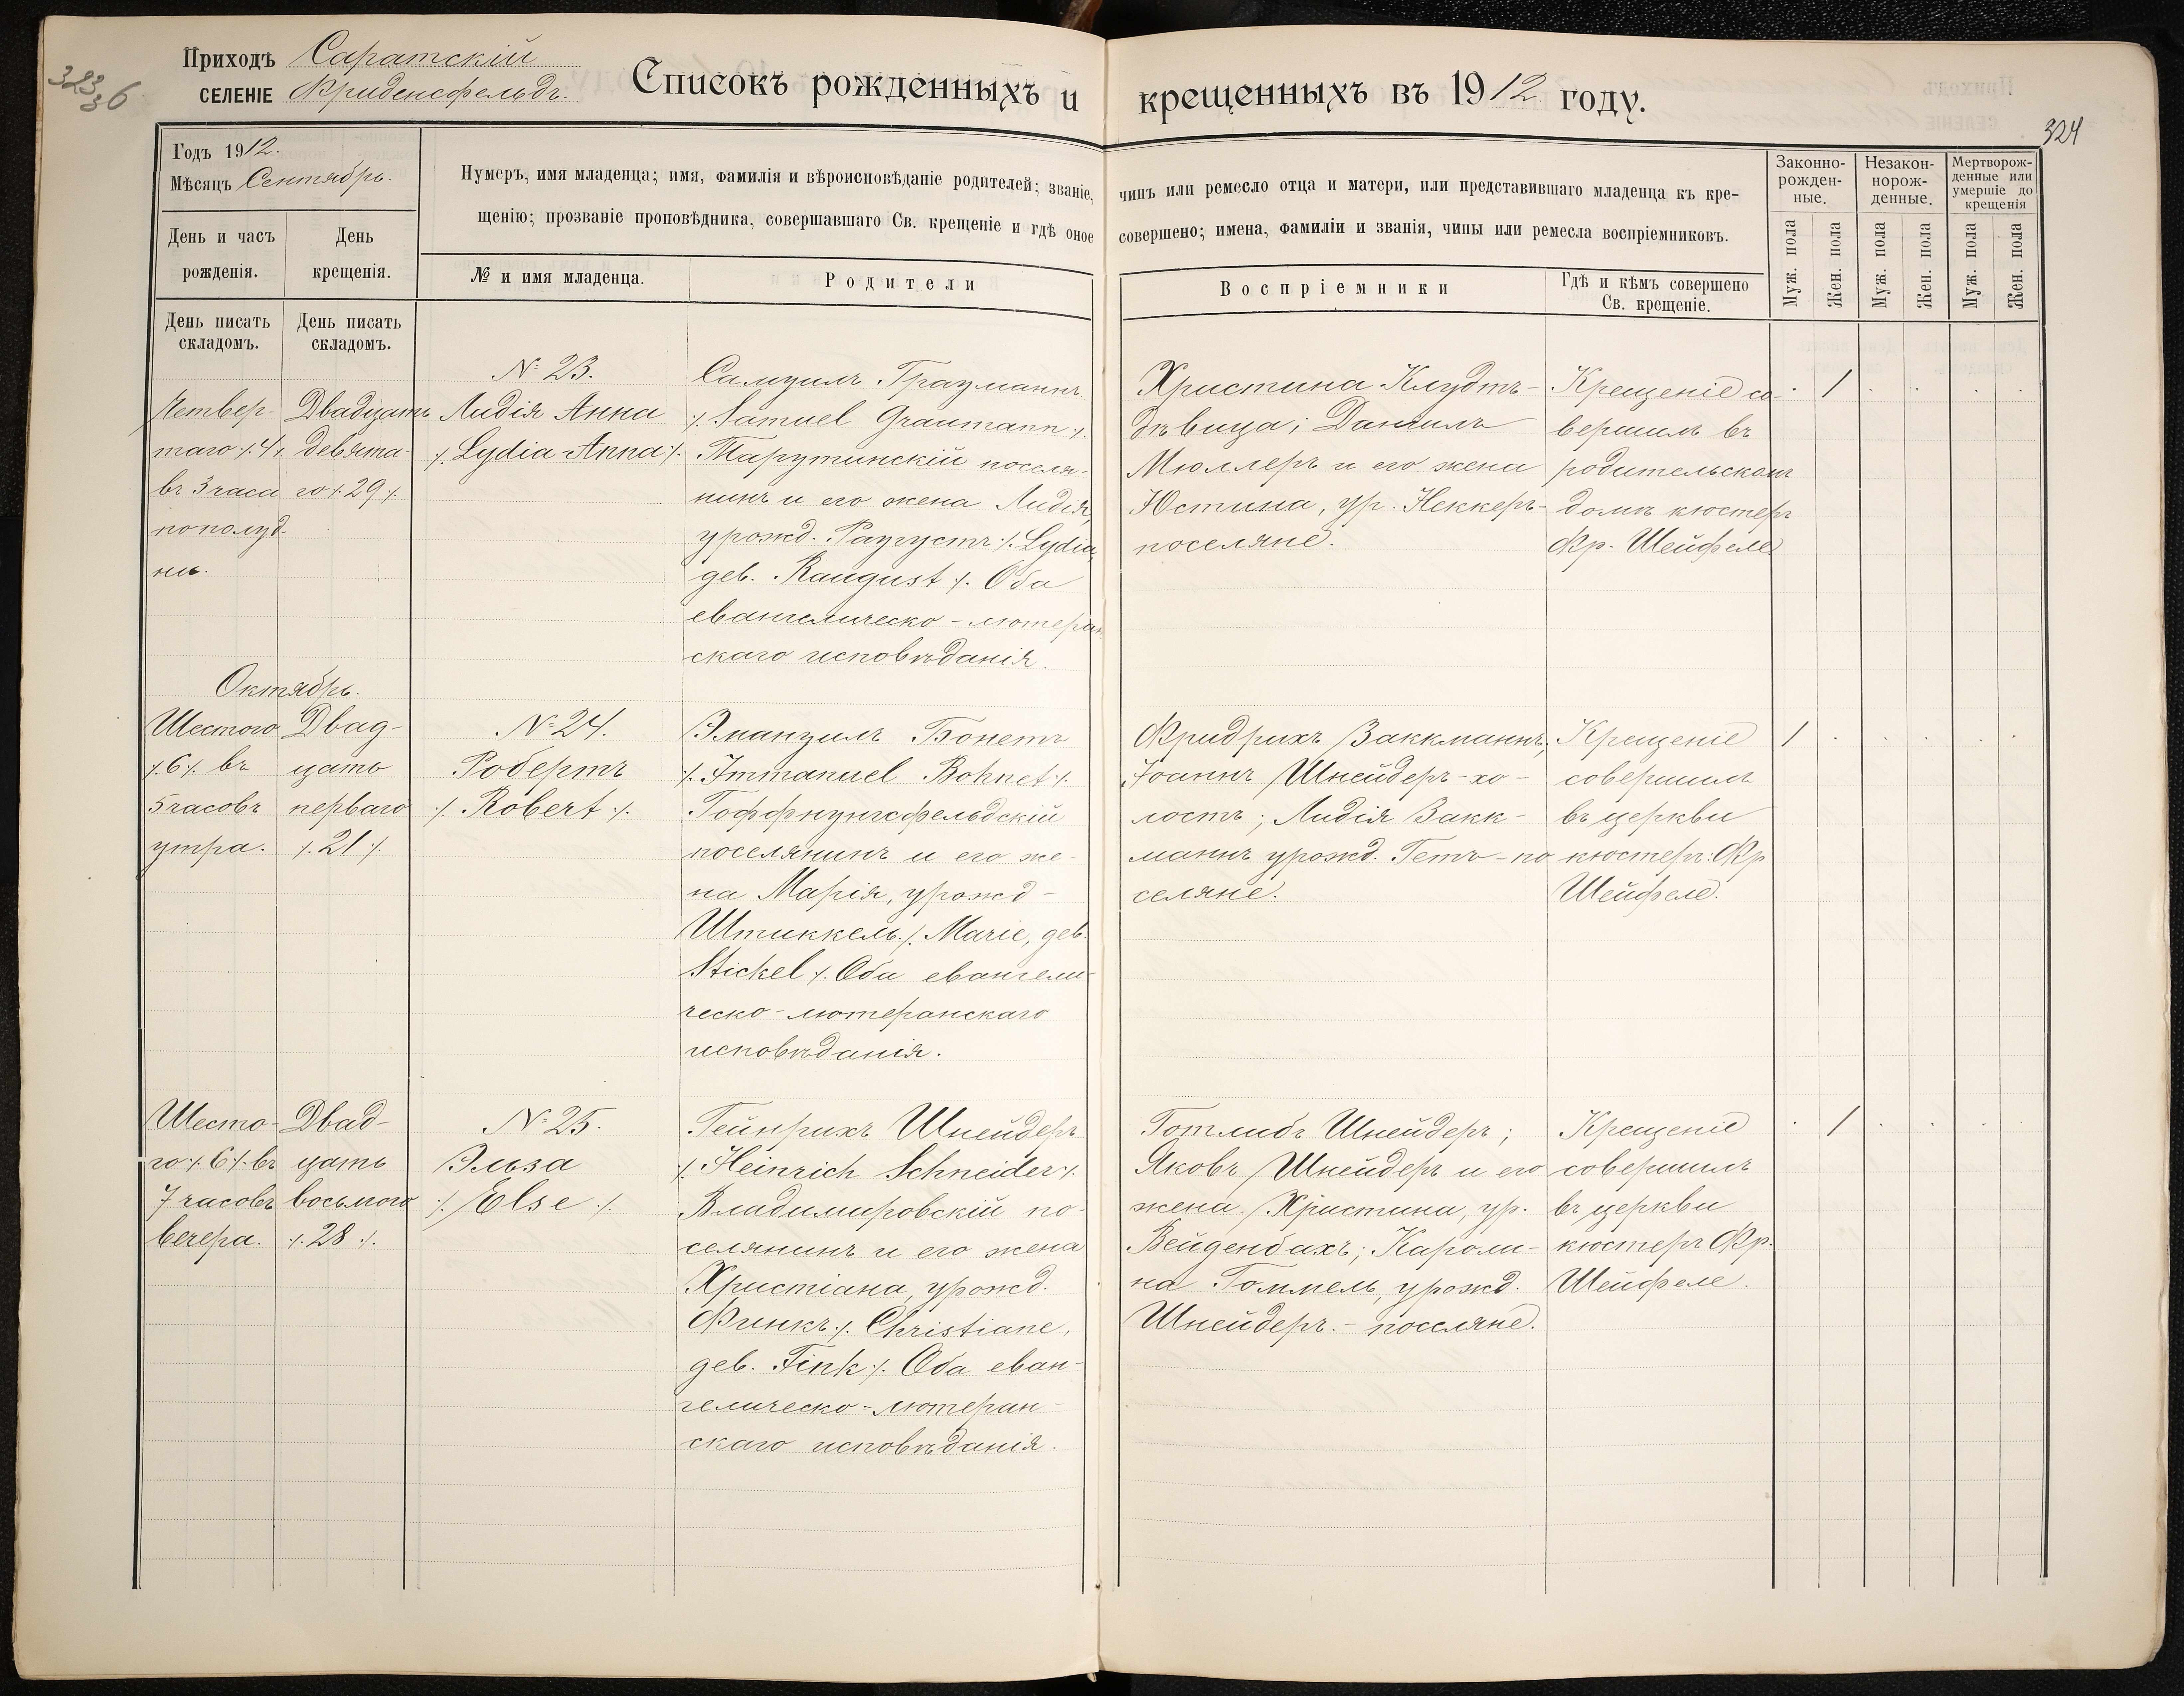 323
36
Приходъ Саратскій
СЕЛЕНІЕ Фриденсфельдъ.
Списокъ рожденныхъ и крещенныхъ въ 1912 году.
324
Годъ 1912.
Мѣсяцъ Сентябрь.
День и часъ
рожденія.
День
крещенія.
День писать
складомъ.
День писать
складомъ.
Нумеръ, имя младенца; имя, фамилія и вѣроисповѣданіе родителей; званіе, чинъ или ремесло отца и матери, или представившаго младенца къ кре-
щенію; прозваніе проповѣдника, совершавшаго Св. крещеніе и гдѣ оное совершено; имена, фамиліи и званія, чины или ремесла воспріемниковъ.
№ и имя младенца.
Родители
Воспріемники
Гдѣ и кѣмъ совершено
Св. крещеніе.
Законно-
рожден-
ные.
Незакон-
норож-
денные.
Мертворож-
денные или
умершіе до
крещенія
Муж. пола
Жен. пола
Муж. пола
Жен. пола
Муж. пола
Жен. пола
Четвер-
таго ./.4./.
въ 3 часа
пополуд-
ни.
Двадцать
девята-
го ./.29./.
№ 23.
Лидія Анна
./. Lydia Anna ./.
Самуилъ Грауманнъ
./. Samuel Graumann ./.
Тарутинскій поселя-
нинъ и его жена Лидія,
урожд. Раугустъ ./. Lydia,
geb. Raugust ./. Оба
евангелическо-лютеран-
скаго исповѣданія.
Христина Клудтъ-
дѣвица; Даніилъ
Мюллеръ и его жена
Юстина, ур. Неккеръ-
поселяне.
Крещеніе со-
вершилъ въ
родительскомъ
домѣ кюстеръ
Фр. Шейфеле
1
Октябрь.
Шестого
./.6./. въ
5 часовъ
утра.
Двад-
цать
перваго
./.21./.
№ 24.
Робертъ
./. Robert ./.
Эмануилъ Бонетъ
./. Immanuel Bohnet ./.
Гоффнунгсфельдскій
поселянинъ и его же-
на Марія, урожд-
Штиккель ./. Marie, geb.
Stickel ./. Оба евангели-
ческо-лютеранскаго
исповѣданія.
Фридрихъ Заккманнъ;
Іоаннъ Шнейдеръ-хо-
лостъ; Лидія Закк-
маннъ урожд. Гетъ-по
селяне.
Крещеніе
совершилъ
въ церкви
кюстеръ: Фр
Шейфеле.
1
Шесто-
го ./.6./. въ
7 часовъ
вечера.
Двад-
цать
восьмого
./.28./.
№ 25.
Эльза
./. Else ./.
Гейнрихъ Шнейдеръ
./. Heinrich Schneider ./.
Владимировскій по-
селянинъ и его жена
Христіана, урожд.
Финкъ ./. Christiane,
geb. Fink ./. Оба еван-
гелическо-лютеран-
скаго исповѣданія.
Готлибъ Шнейдеръ;
Яковъ Шнейдеръ и его
жена Христина, ур.
Вейденбахъ; Кароли-
на Гоммель, урожд.
Шнейдеръ.- поселяне.
Крещеніе
совершилъ
въ церкви
кюстеръ Фр.
Шейфеле.
1